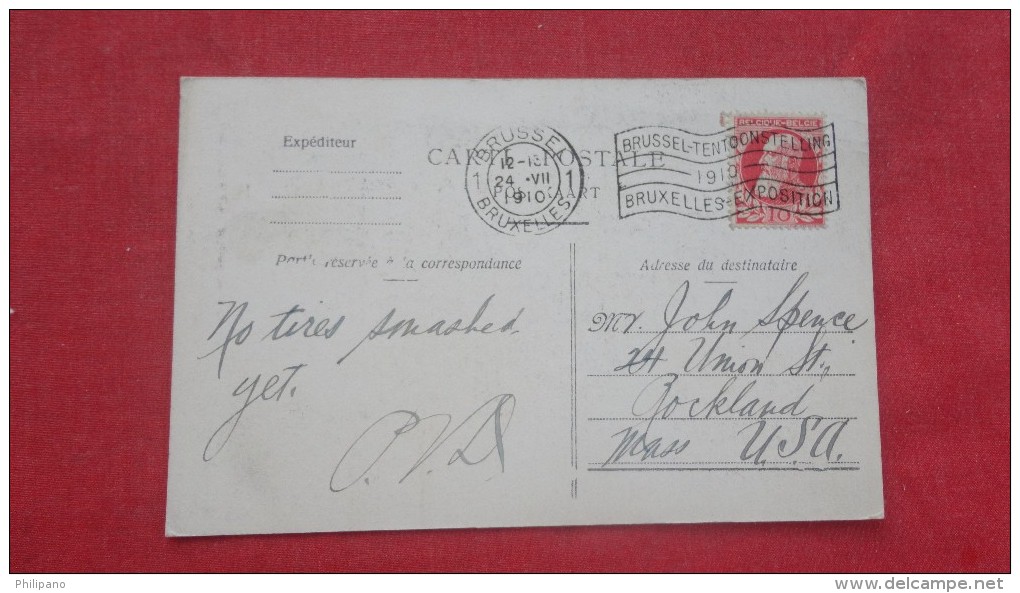 Expéditeur
CARTE POSTALE
BRUSSEL
12-
24 · VII
1 1
1910
BRUXELLES
BRUSSEL-TENTOONSTELLING
1910
BRUXELLES-EXPOSITION
BELGIQUE-BELGIE
10
Partie réservée à la correspondance
Adresse du destinataire
No tires smashed
yet.
P.V.D
Mr. John Spence
24 Union St.,
Rockland
Mass U.S.A.
Philipano
www.delcampe.net